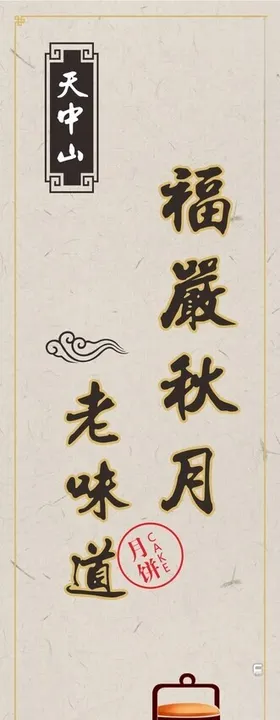 天中山
福嚴秋月
老味道
月饼
CAKE